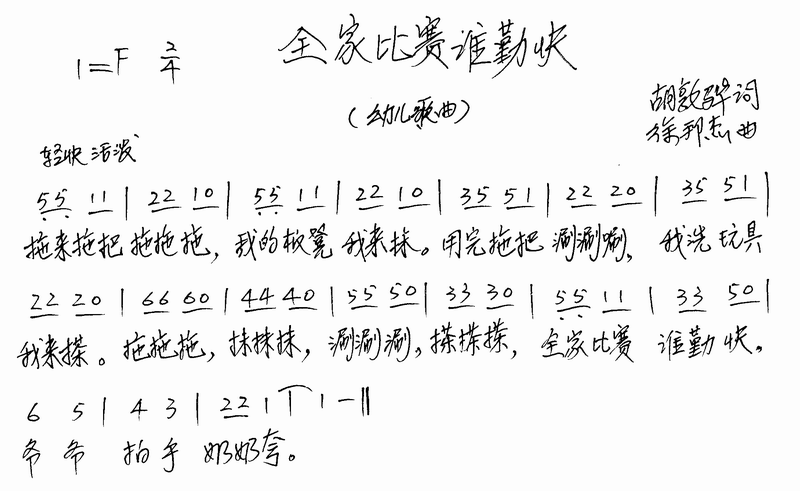 全家比赛谁勤快
1=F 2/4
(幼儿歌曲)
胡敦骅词
徐邦杰曲
轻快活泼
55 11 | 22 10 | 55 11 | 22 10 | 35 51 | 22 20 | 35 51 |
拖来拖把拖拖拖，我的板凳我来抹。用完拖把涮涮涮，我洗玩具
22 20 | 66 60 | 44 40 | 55 50 | 33 30 | 55 11 | 33 50 |
我来搽。拖拖拖，抹抹抹，涮涮涮，搽搽搽，全家比赛 谁勤快，
6 5 | 4 3 | 22 1 | 1 - ‖
爷爷 拍手 奶奶夸。